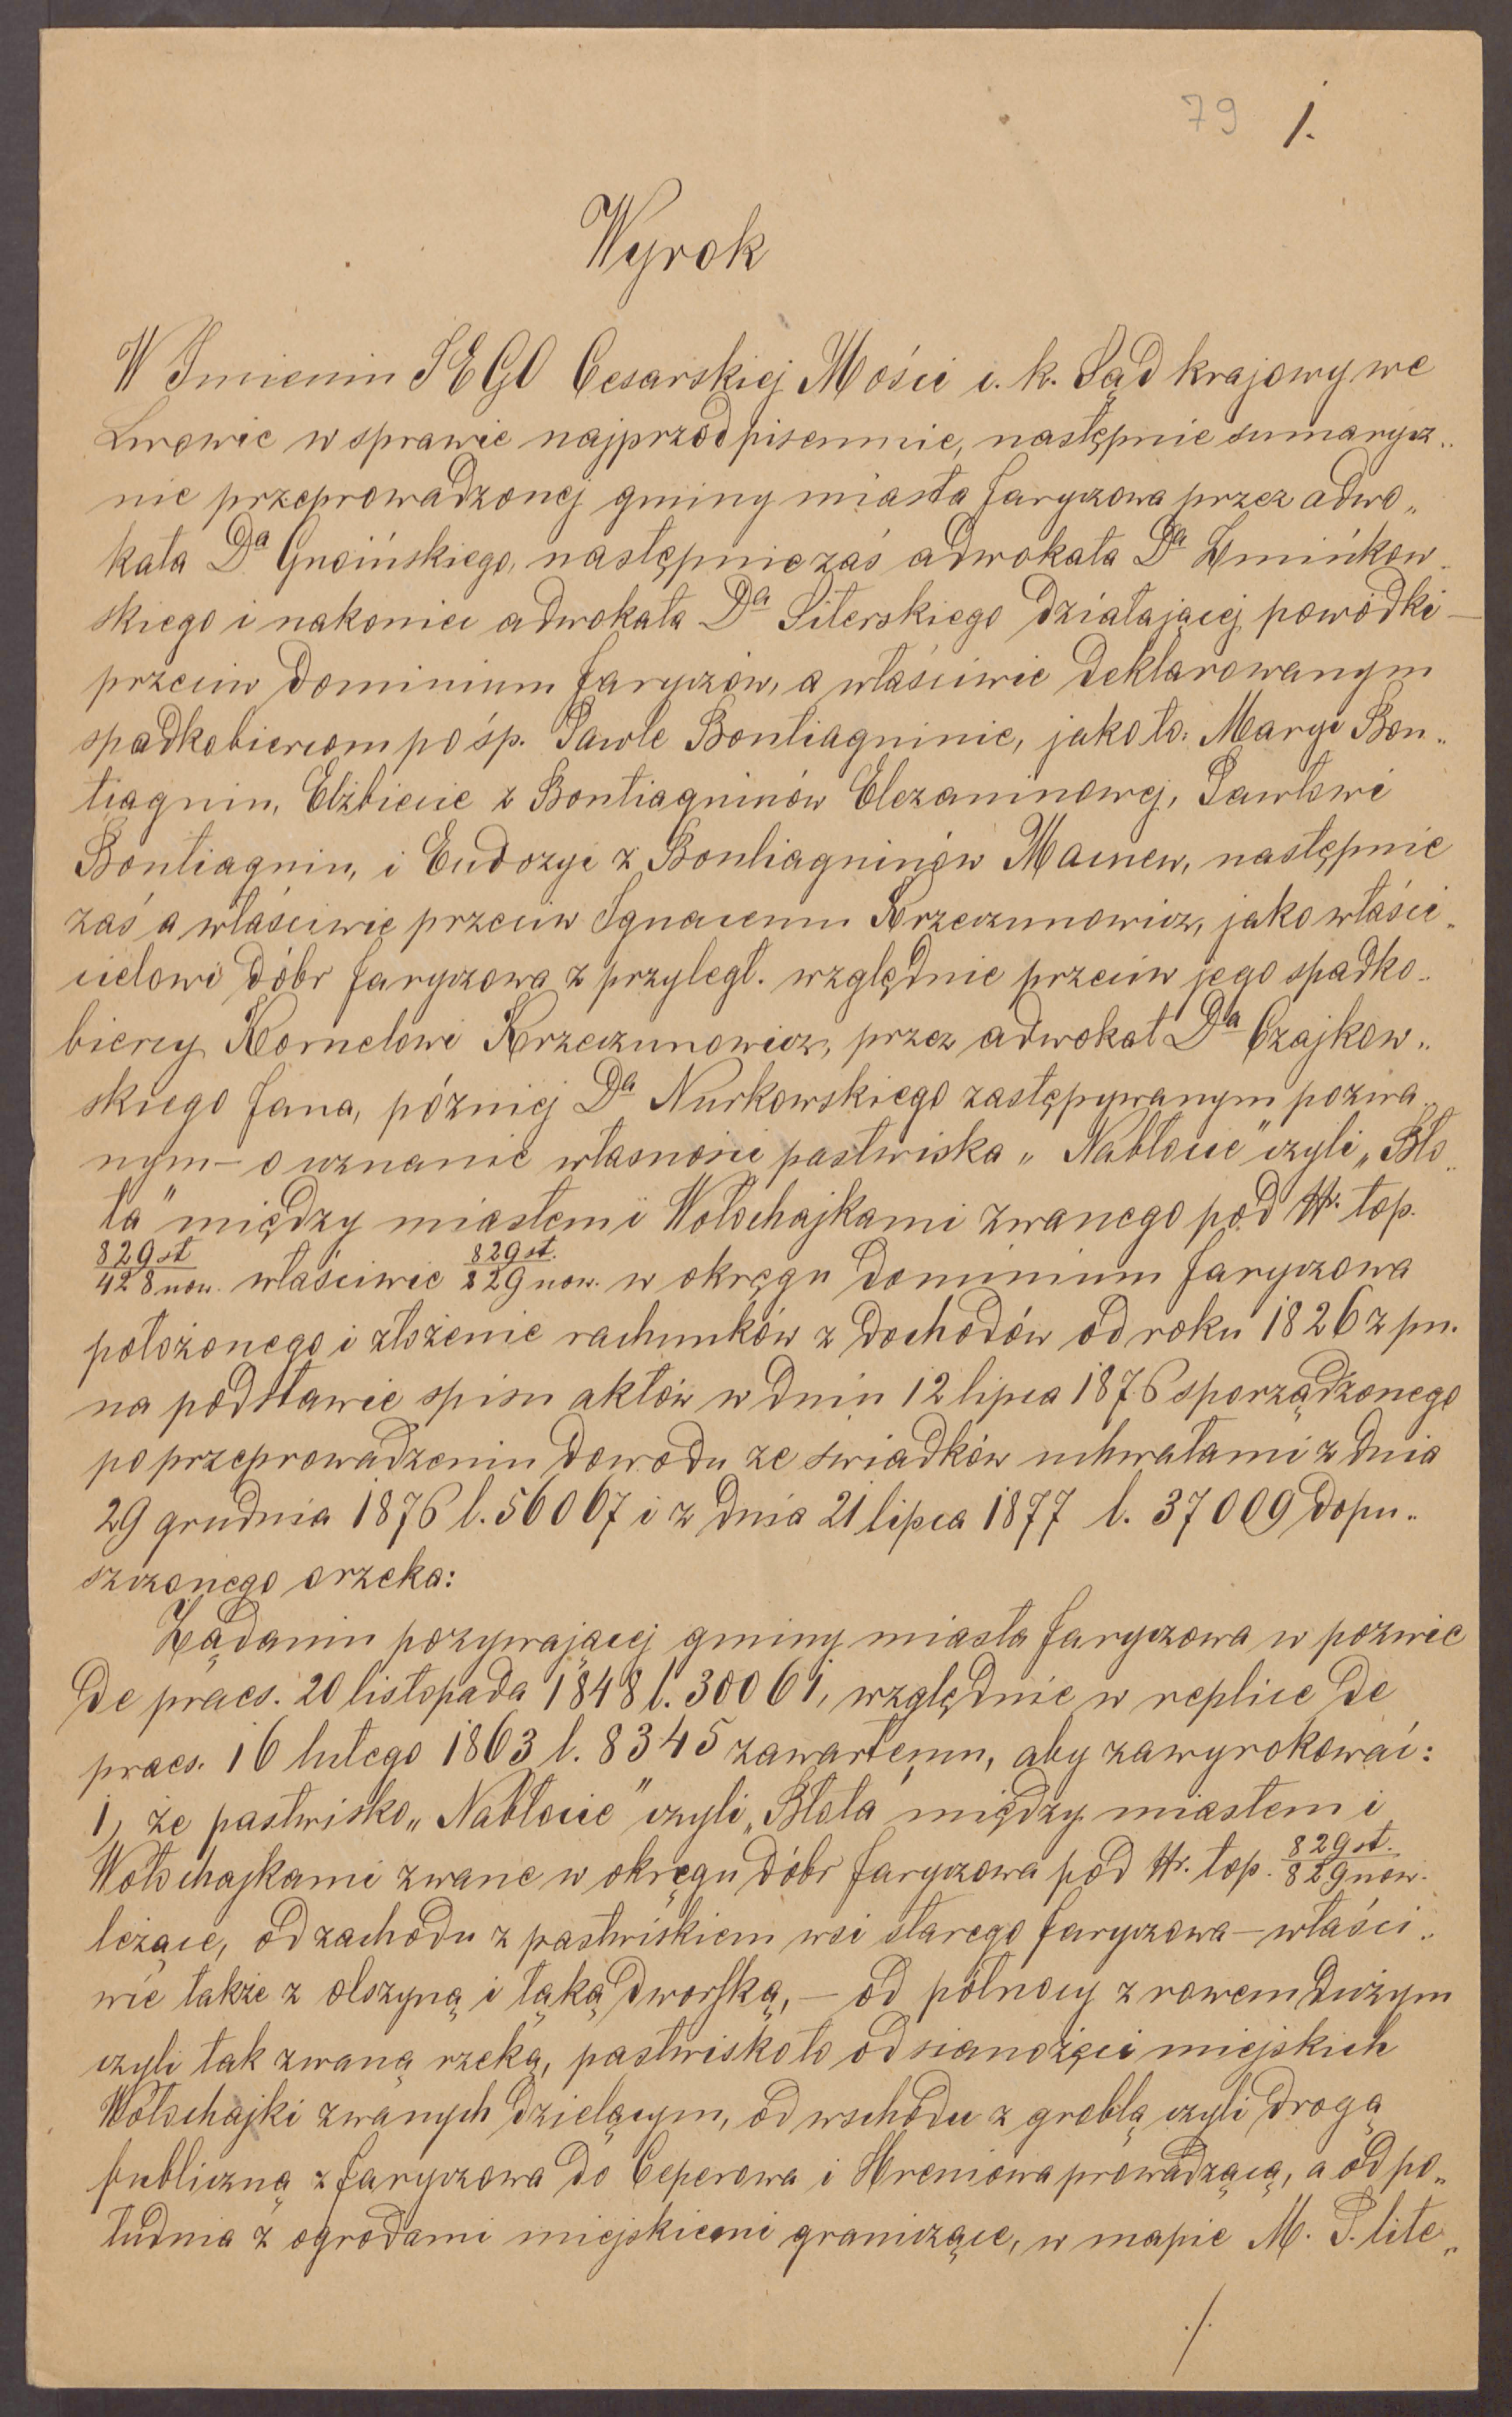 79 1.
Wyrok
W Imieniu JEGO Cesarskiej Mości c. k. Sąd krajowy we
Lwowie w sprawie najprzód pisemnie, następnie sumarycz„
nie przeprowadzonej gminy miasta Jaryczowa przez adwo„
kata Dᵃ Gnoińskiego, następnie zaś adwokata Dᵃ Żmińkow„
skiego i nakoniec adwokata Dᵃ Siterskiego działającej powódki —
przeciw Dominium Jaryczów, a właściwie deklarowanym
spadkobiercom po śp. Pawle Bontiagninie, jako to: Maryi Bon„
tiagnin, Elżbiecie z Bontiagninów Elezaninowej, Pawłowi
Bontiagnin, i Eudozyi z Bontiagninów Macnew, następnie
zaś a właściwie przeciw Ignacemu Krzeczunowicz, jako właści„
cielowi dóbr Jaryczowa z przyległ. względnie przeciw jego spadko„
biercy Kornelowi Krzeczunowicz, przez adwokat Dᵃ Czajkow„
skiego Jana, później Dᵃ Nurkowskiego zastępywanym pozwa„
nym — o uznanie własności pastwiska „Nabłocie" czyli „Bło„
ta" między miastem i Wołochajkami zwanego pod Nr. top.
829 st / 428 now. właściwie 829 st. / 829 now. w okręgu Dominium Jaryczowa
położonego i złożenie rachunków z dochodów od roku 1826 z pn.
na podstawie spisu aktów w dniu 12 lipca 1876 sporządzonego
po przeprowadzeniu dowodu ze świadków uchwałami z dnia
29 grudnia 1876 l. 56067 i z dnia 21 lipca 1877 l. 37009 dopu„
szczonego orzeka:
Żądaniu pozywającej gminy miasta Jaryczowa w pozwie
de praes. 20 listopada 1848 l. 30061, względnie w replice de
praes. 16 lutego 1863 l. 8345 zawartemu, aby zawyrokować:
1, że pastwisko „Nabłocie" czyli „Błota" między miastem i
Wołochajkami zwane w okręgu dóbr Jaryczowa pod Nr. top. 829 st. / 829 now.
leżące, od zachodu z pastwiskiem wsi starego Jaryczowa — właści„
wie także z olszyną i łąką dworską, — od północy z rowem dużym
czyli tak zwaną rzeką, pastwisko to od sianożęci miejskich
Wołochajki zwanych dzielącym, od wschodu z groblą czyli drogą
publiczną z Jaryczowa do Ceperowa i Hreniowa prowadzącą, a od po„
łudnia z ogrodami miejskiemi graniczące, w mapie M. P. lite„
./.